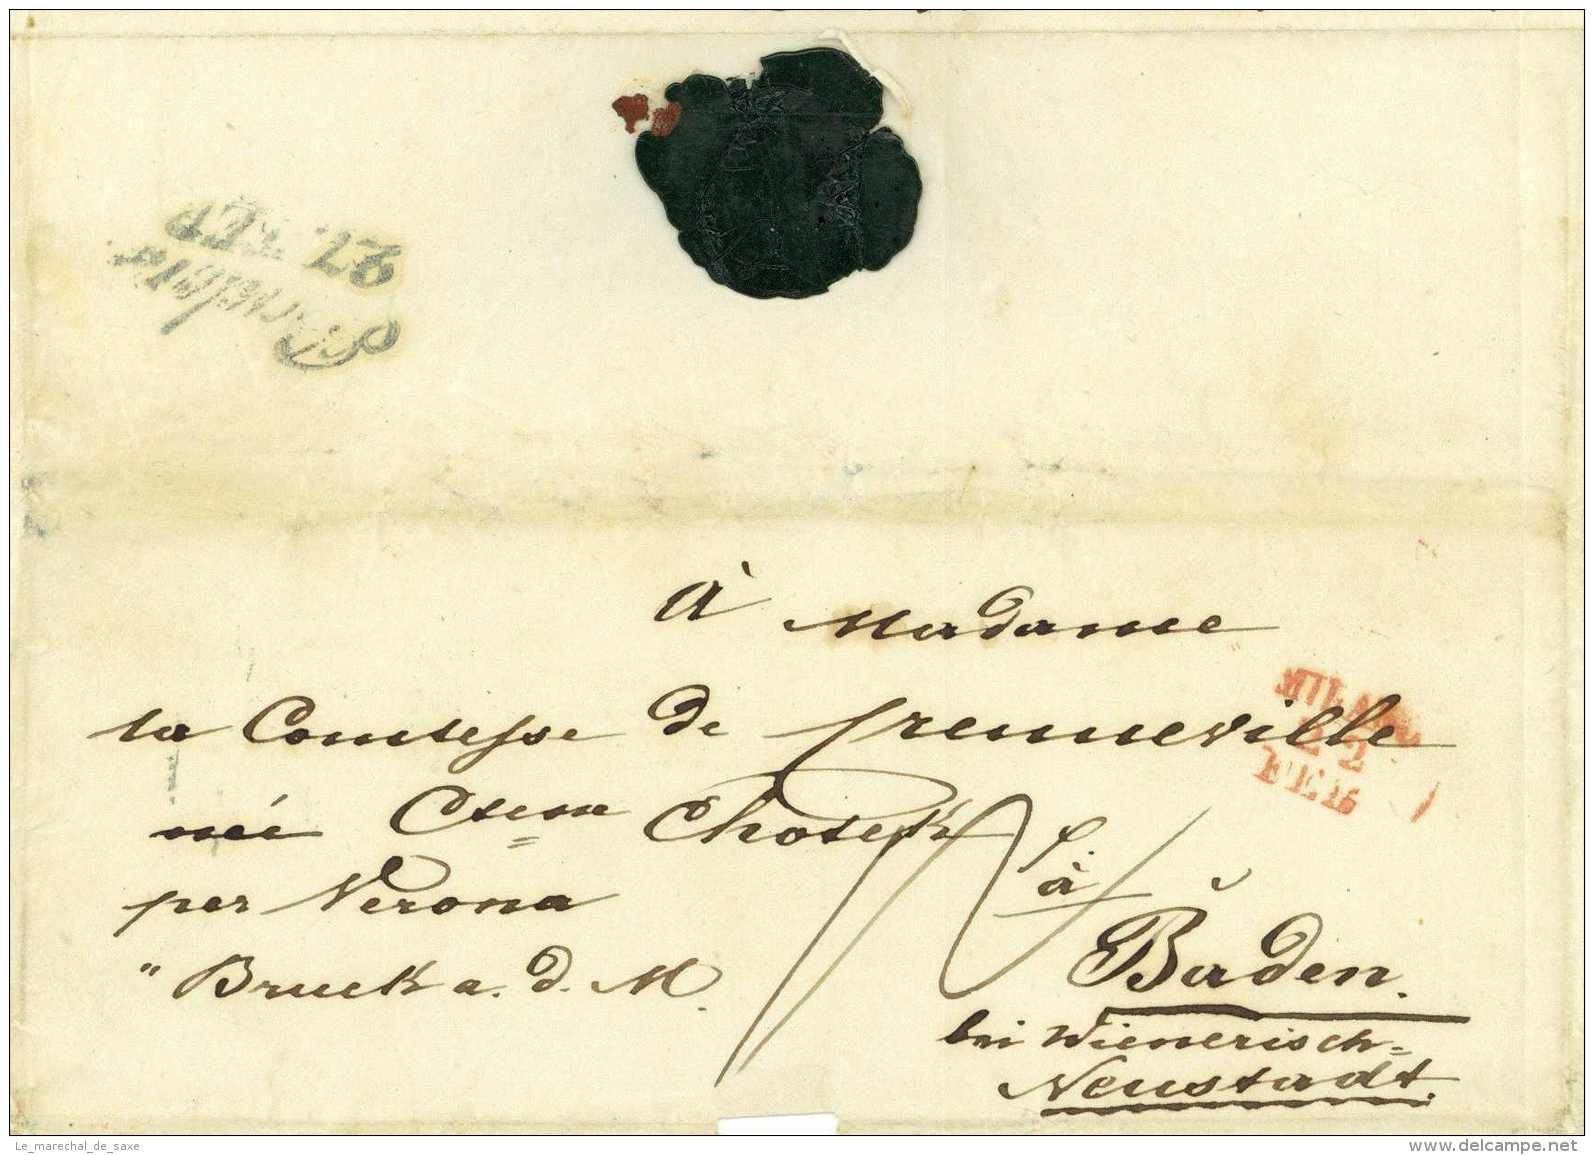 à Madame
la Comtesse de Crenneville
née Ctesse Chotek
per Verona
" Bruck a. d. M.
p.
à
Baden.
bei Wienerisch=
Neustadt.
MILANO
22
FEB
27. FEB
Le_marechal_de_saxe
www.delcampe.net